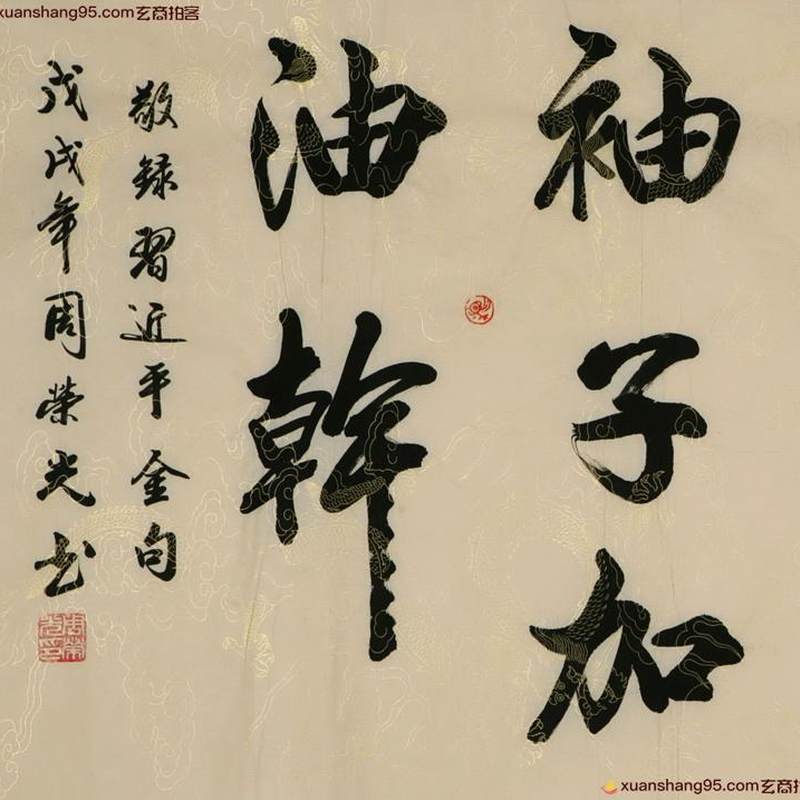 xuanshang95.com玄商拍客
袖子加
油幹
敬録習近平金句
戊戌年周榮光书
xuanshang95.com玄商拍客